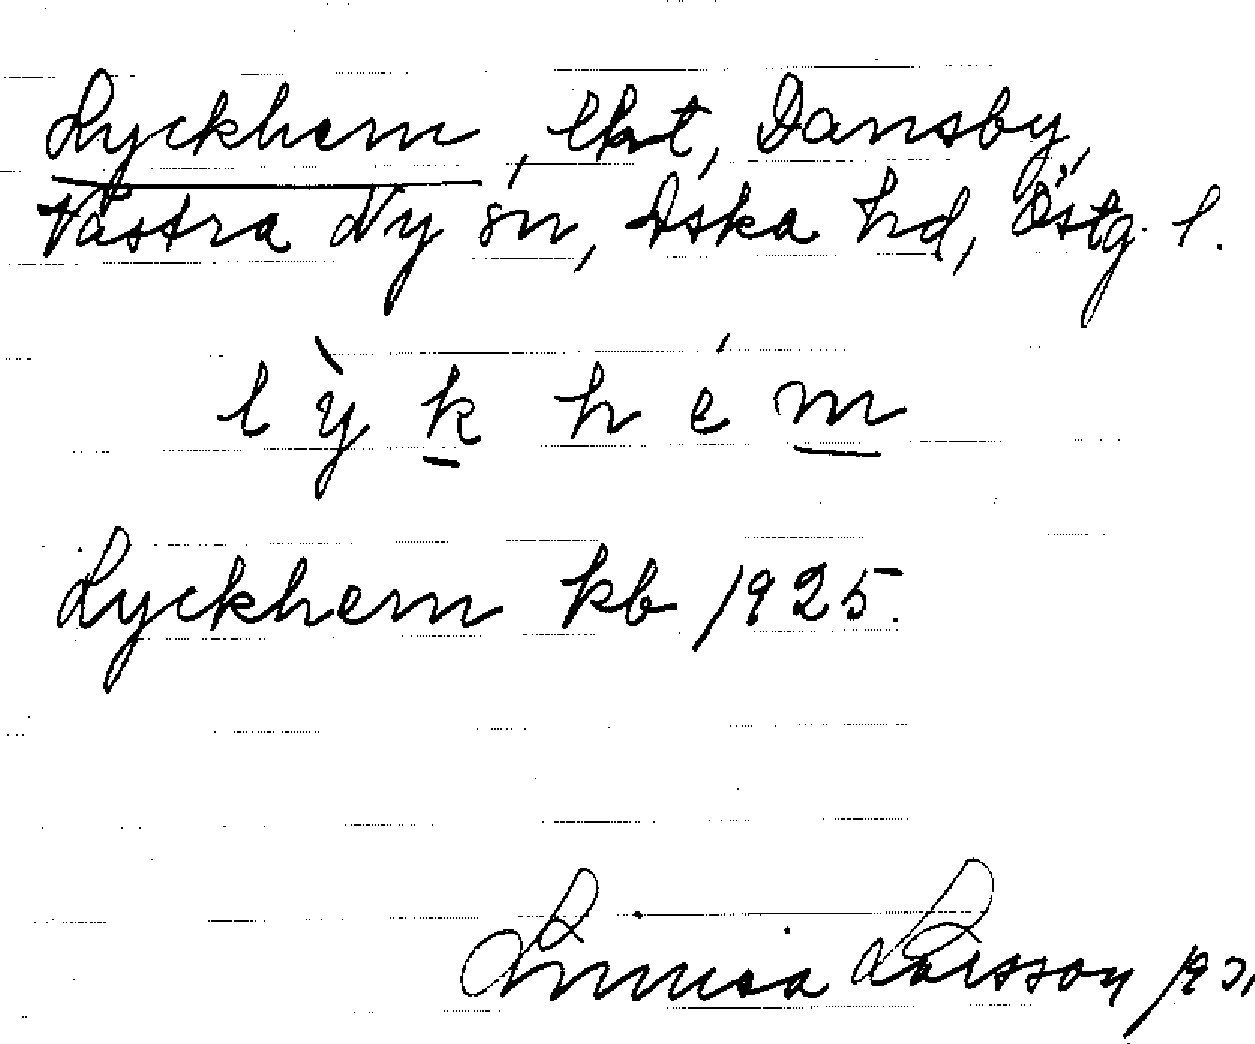 Lyckhem, lht, Dansby,
Västra Ny sn, Aska hd, Östg. l.
l ỳ k h é m
Lyckhem kb 1925.
Larsson 193